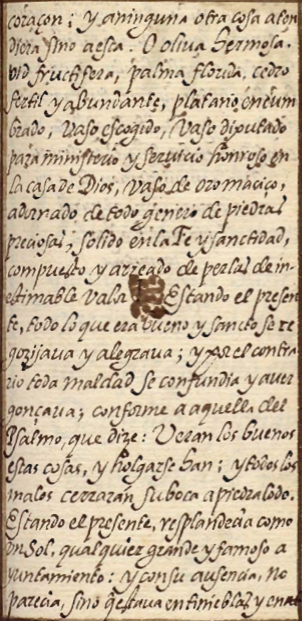 coraçon; y aninguna otra cosa aten
diera sino aesta. O oliva hermosa.
vid fructifera, palma florida, cedro
fertil y abundante, platano encum
brado, vaso escogido, vaso diputado
para ministerio y servicio honroso en
la casa de Dios, vaso de oro maciço,
adornado de todo genero de piedras
preciosas; solido en la Fe y sanctidad,
compuesto y arreado de perlas de in-
estimable vala Estando el presen
te, todo lo que era bueno y sancto se re
gozijava y alegrava; y por el contra
rio toda maldad se confundia y aver
gonçava; conforme a aquella del
Psalmo, que dize: Veran los buenos
estas cosas, y holgarse han; y todos los
malos cerraran su boca a piedra lodo.
Estando el presente, resplandecia como
un Sol, qualquier grande y famoso a
yuntamiento: y con su ausencia, no
parecia, sino q estava en tinieblas y en